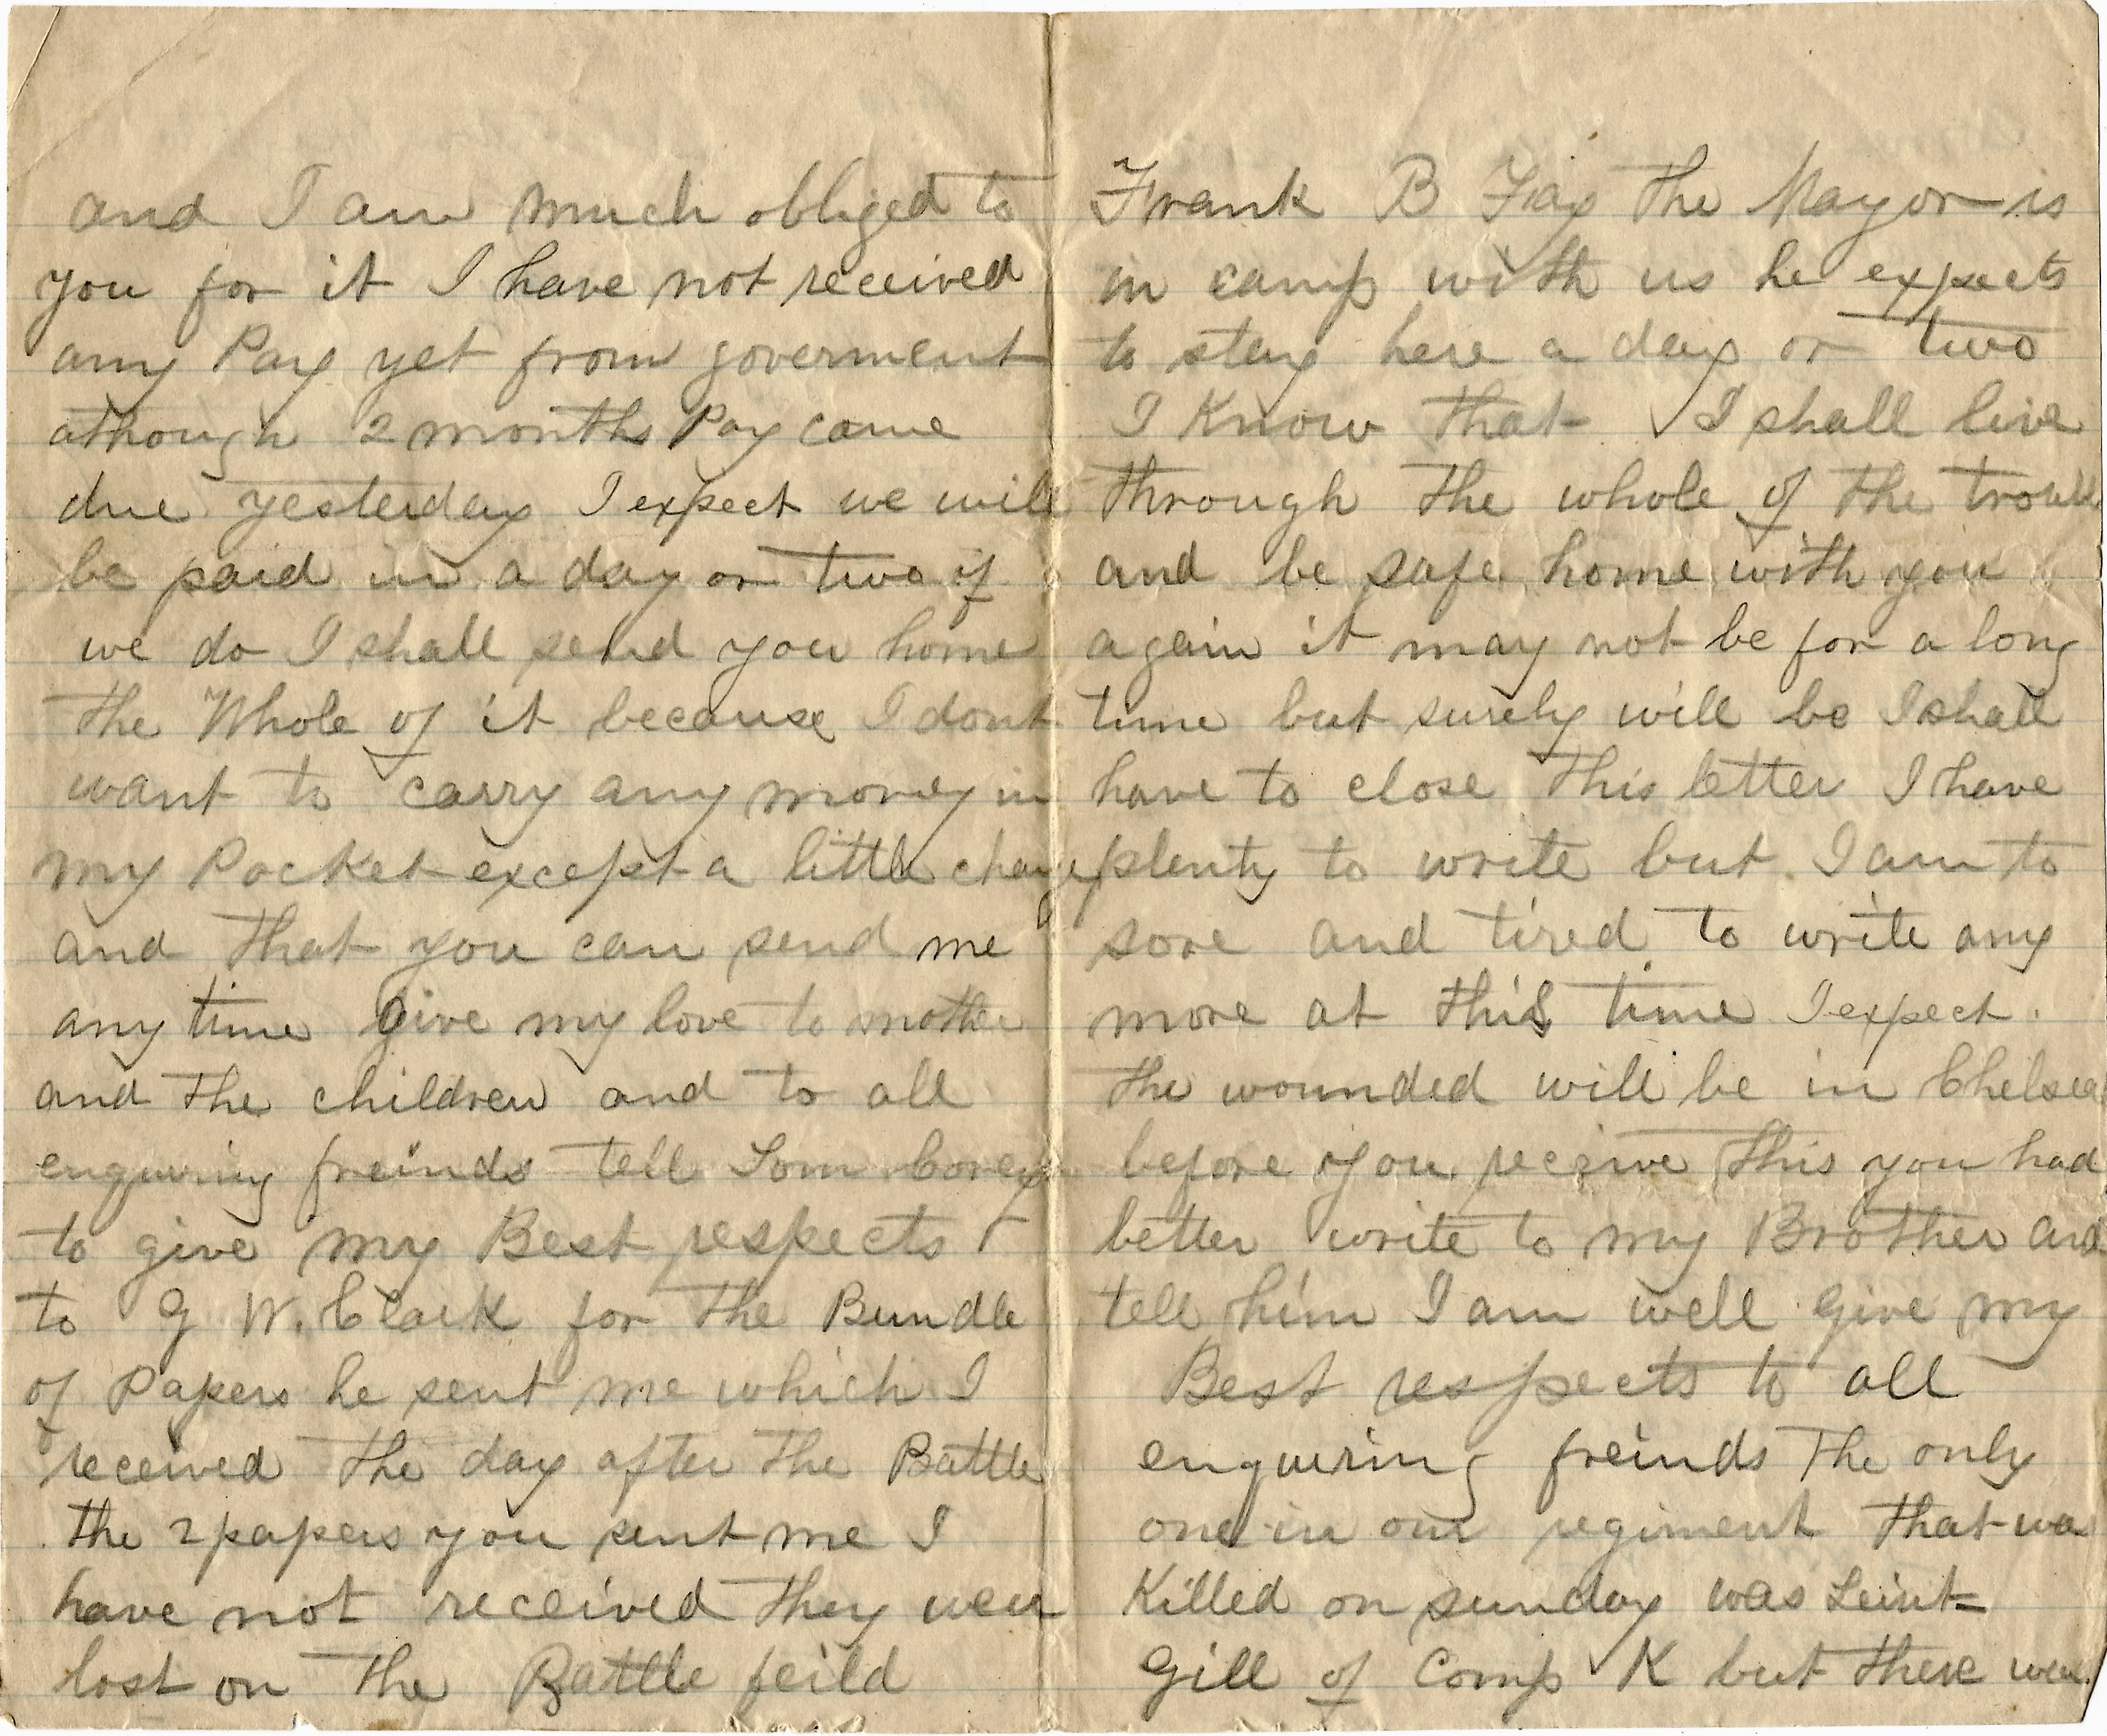 and I am much obliged to
you for it I have not received
any Pay yet from goverment
athough 2 months Pay came
due yesterday I expect we will
be paid in a day or two if
we do I shall send you home
the Whole of it because I dont
want to carry any money in
my Pocket except a little change
and that you can send me
any time Give my love to mother
and the children and to all
enquiring freinds tell Tom Corey
to give my Best respects
to G W. Clark for the Bundle
of Papers he sent me which I
received the day after the Battle
the 2 papers you sent me I
have not received they were
lost on the Battle feild
Frank B Fay the Mayor is
in camp with us he expects
to stay here a day or two
I Know that I shall live
through the whole of the
and be safe home with you
again it may not be for a long
time but surely will be I shall
have to close this letter I have
plenty to write but I am to
sore and tired to write any
more at this time I expect.
the wounded will be in Chelsea
before you receive this you had
better write to my Brother and
tell him I am well give my
Best respects to all
enquiring freinds The only
one in our regiment that wa
Killed on sunday was Leint
Gill of Comp K but there